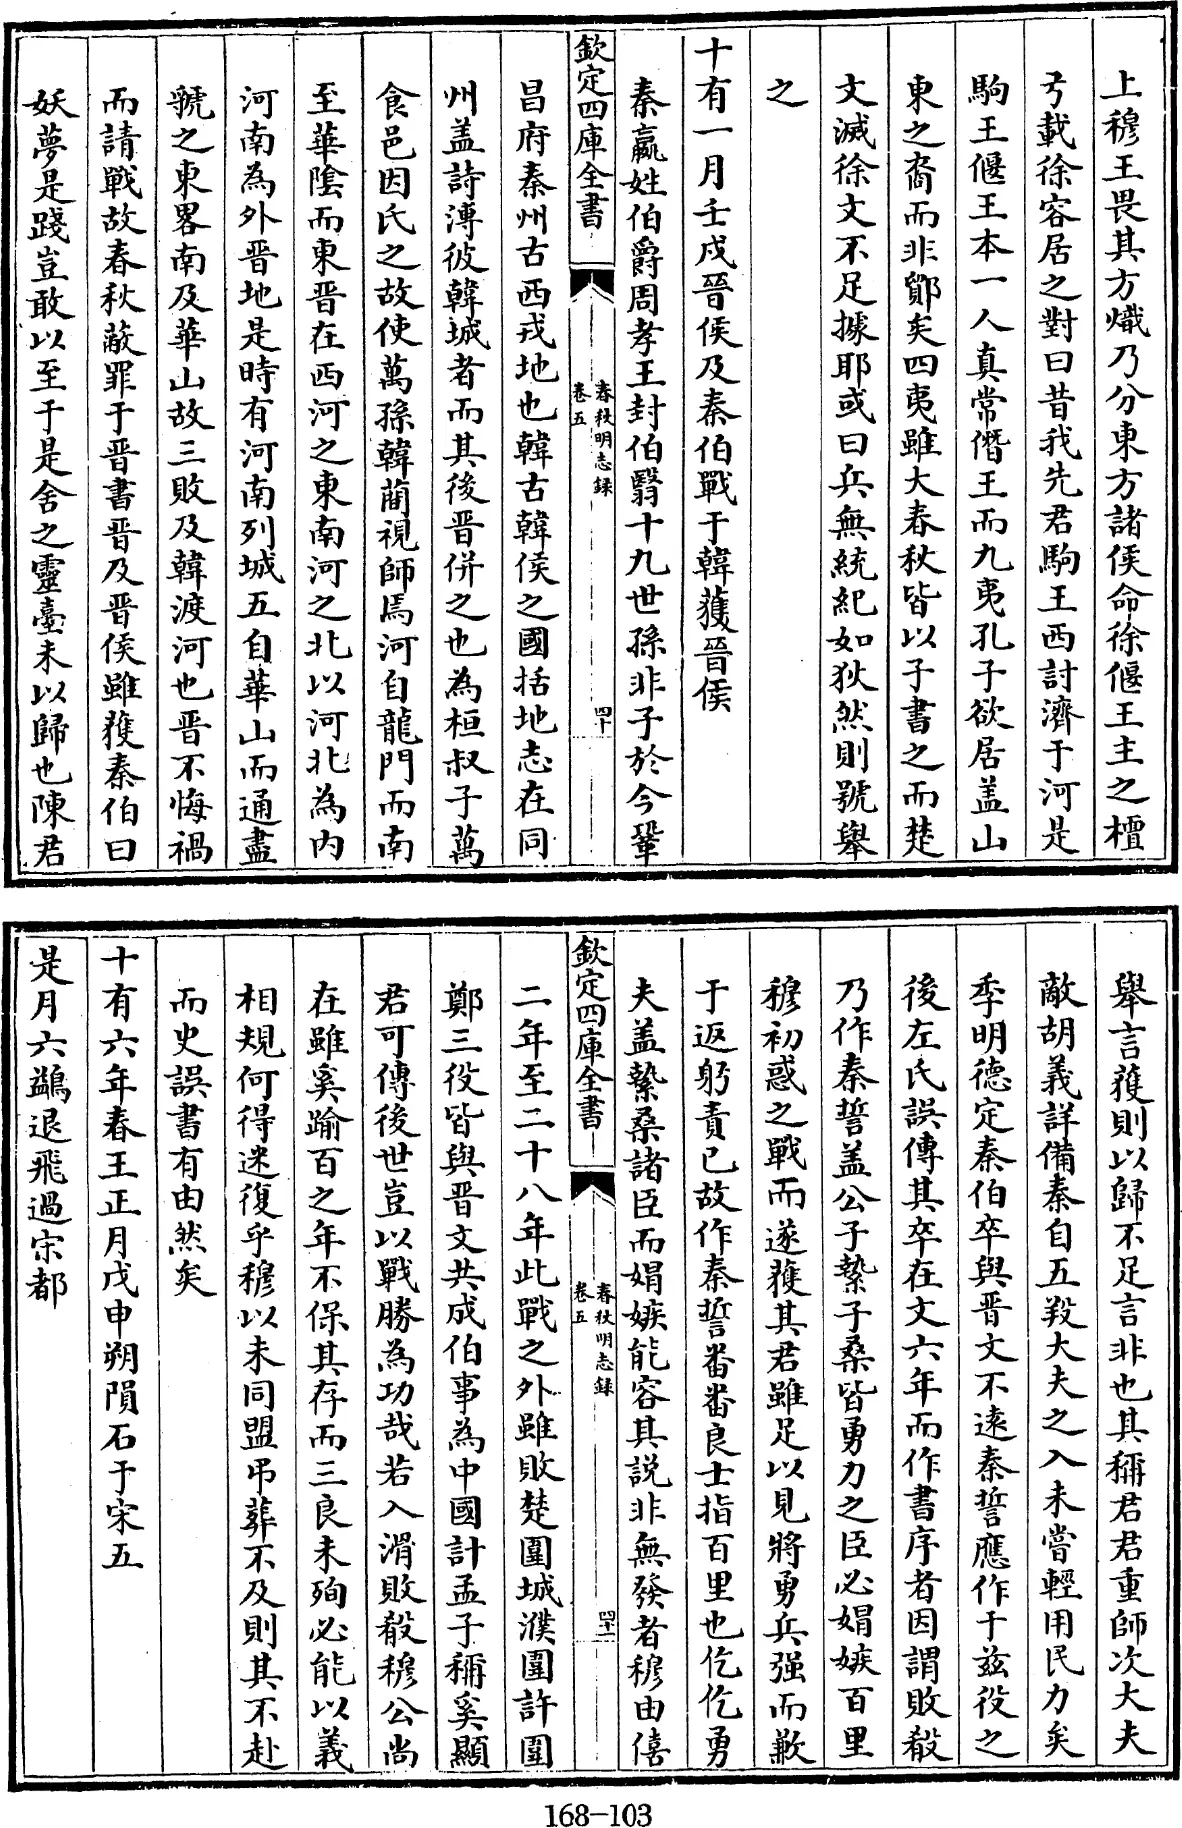 上穆王畏其方熾乃分東方諸侯命徐偃王主之檀
弓載徐容居之對曰昔我先君駒王西討濟于河是
駒王偃王本一人真常僭王而九夷孔子欲居盖山
東之裔而非鄮矣四夷雖大春秋皆以子書之而楚
文滅徐文不足據耶或曰兵無統紀如狄然則號舉
之
十有一月壬戍晉侯及秦伯戰于韓獲晉侯
秦嬴姓伯爵周孝王封伯翳十九世孫非子於今鞏
欽定四庫全書
春秋明志録
卷五
四十
昌府秦州古西戎地也韓古韓侯之國括地志在同
州盖詩溥彼韓城者而其後晋併之也為桓叔子萬
食邑因氏之故使萬孫韓蕳視師焉河自龍門而南
至華陰而東晋在西河之東南河之北以河北為内
河南為外晋地是時有河南列城五自華山而通盡
虢之東畧南及華山故三敗及韓渡河也晋不悔禍
而請戰故春秋蔽罪于晋書晋及晋侯雖獲秦伯曰
妖夢是踐豈敢以至于是舍之靈臺未以歸也陳君
舉言獲則以歸不足言非也其稱君君重師次大夫
敵胡義詳備秦自五羖大夫之入未嘗輕用民力矣
季明德定秦伯卒與晋文不遠秦誓應作于兹役之
後左氏誤傳其卒在文六年而作書序者因謂敗殽
乃作秦誓盖公子縶子桑皆勇力之臣必娼嫉百里
穆初惑之戰而遂獲其君雖足以見將勇兵强而歉
于返躬責已故作秦誓畨畨良士指百里也仡仡勇
夫盖縶桑諸臣而娟嫉能容其説非無發者穆由僖
欽定四庫全書
春秋明志録
卷五
四十一
二年至二十八年此戰之外雖敗楚圍城濮圍許圍
鄭三役皆與晋文共成伯事為中國計孟子稱奚顯
君可傳後世豈以戰勝為功哉若入滑敗殽穆公尚
在雖奚踰百之年不保其存而三良未殉必能以義
相規何得迷復乎穆以未同盟弔葬不及則其不赴
而史誤書有由然矣
十有六年春王正月戊申朔隕石于宋五
是月六鷁退飛過宋都
168-103